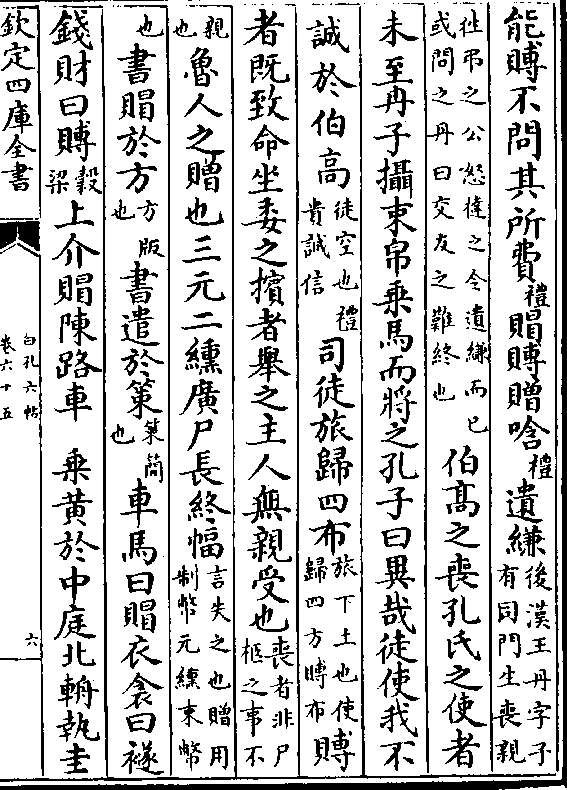 能賻不問其所費禮賵賻贈唅禮遺縑後漢王丹字子有同門生喪親
徃弔之公怒撻之令遺縑而已或問之丹曰交友之難終也伯髙之喪孔氏之使者
未至冉子攝束帛乗馬而將之孔子曰異哉徒使我不
誠於伯高徒空也禮貴誠信司徒旅歸四布旅下士也使歸四方賻布賻
者既致命坐委之擯者舉之主人無親受也喪者非尸柩之事不
親也魯人之贈也三元二纁廣尺長終幅言失之也贈用制幣元纁束幣
也書賵於方方版也書遣於策策簡也車馬曰賵衣衾曰襚
錢財曰賻穀梁上介賵陳路車 乗黄於中庭北輈執圭
欽定四庫全書
白孔六帖
卷六十五
六